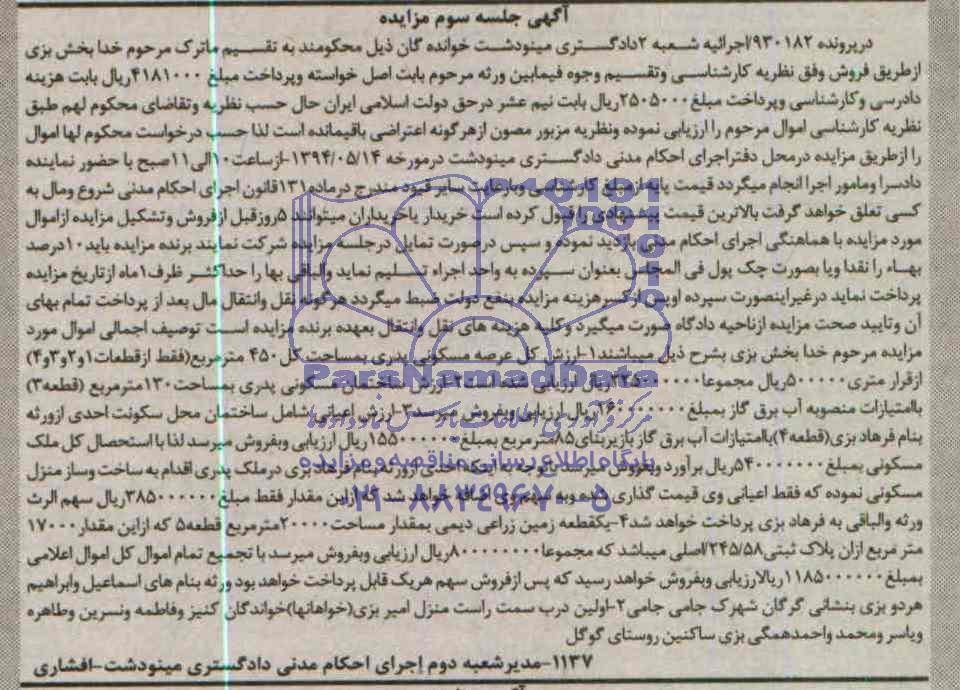 آگهی جلسه سوم مزایده
درپرونده ۹۳۰۱۸۲/اجرائیه شعبه ۲دادگستری مینودشت خوانده گان ذیل محکومند به تقسیم ماترک مرحوم خدا بخش بزی
ازطریق فروش وفق نظریه کارشناسی وتقسیم وجوه فیمابین ورثه مرحوم بابت اصل خواسته وپرداخت مبلغ ۴۱۸۱۰۰۰ریال بابت هزینه
دادرسی وکارشناسی وپرداخت مبلغ۲۵۰۵۰۰۰ریال بابت نیم عشر درحق دولت اسلامی ایران حال حسب نظریه وتقاضای محکوم لهم طبق
نظریه کارشناسی اموال مرحوم را ارزیابی نموده ونظریه مزبور مصون ازهرگونه اعتراضی باقیمانده است لذا حسب درخواست محکوم لها اموال
را ازطریق مزایده درمحل دفتراجرای احکام مدنی دادگستری مینودشت درمورخه ۱۳۹۴/۰۵/۱۴-ازساعت۱۰الی۱۱صبح با حضور نماینده
دادسرا ومامور اجرا انجام میگردد قیمت پایه ازمبلغ کارشناسی وبارعایت سایر قیود مندرج درماده۱۳۱قانون اجرای احکام مدنی شروع ومال به
کسی تعلق خواهد گرفت بالاترین قیمت پیشنهادی را قبول کرده است خریدار یاخریداران میتوانند ۵روزقبل ازفروش وتشکیل مزایده ازاموال
مورد مزایده با هماهنگی اجرای احکام مدنی بازدید نموده و سپس درصورت تمایل درجلسه مزایده شرکت نمایند برنده مزایده باید۱۰درصد
بهاء را نقدا ویا بصورت چک پول فی المجلس بعنوان سپرده به واحد اجراء تسلیم نماید والباقی بها را حداکثر ظرف۱ماه ازتاریخ مزایده
پرداخت نماید درغیراینصورت سپرده اوپس ازکسرهزینه مزایده بنفع دولت ضبط میگردد هرگونه نقل وانتقال مال بعد از پرداخت تمام بهای
آن وتایید صحت مزایده ازناحیه دادگاه صورت میگیرد وکلیه هزینه های نقل وانتقال بعهده برنده مزایده است توصیف اجمالی اموال مورد
مزایده مرحوم خدا بخش بزی بشرح ذیل میباشند۱-ارزش کل عرصه مسکونی پدری بمساحت کل۴۵۰ مترمربع(فقط ازقطعات۱و۲و۳و۴)
ازقرار متری۵۰۰۰۰۰ریال مجموعا۲۲۵۰۰۰۰۰۰ریال ارزیابی شده است۲-ارزش ساختمان مسکونی پدری بمساحت۱۳۰مترمربع (قطعه۳)
باامتیازات منصوبه آب برق گاز بمبلغ۲۶۰۰۰۰۰۰۰ریال ارزیابی وبفروش میرسد۳-ارزش اعیانی شامل ساختمان محل سکونت احدی ازورثه
بنام فرهاد بزی(قطعه۴)باامتیازات آب برق گاز بازیربنای۸۵مترمربع بمبلغ۱۵۵۰۰۰۰۰۰ریال ارزیابی وبفروش میرسد لذا با استحصال کل ملک
مسکونی بمبلغ۵۴۰۰۰۰۰۰۰ریال برآورد وبفروش میرسد باتوجه به اینکه احدی ازورثه بنام فرهاد بزی درملک پدری اقدام به ساخت وساز منزل
مسکونی نموده که فقط اعیانی وی قیمت گذاری شده وبه سهم وی اضافه خواهد شد که ازاین مقدار فقط مبلغ۳۸۵۰۰۰۰۰۰ریال سهم الرث
ورثه والباقی به فرهاد بزی پرداخت خواهد شد۴-یکقطعه زمین زراعی دیمی بمقدار مساحت۲۰۰۰۰مترمربع قطعه۵ که ازاین مقدار۱۷۰۰۰
متر مربع ازان پلاک ثبتی۲۴۵/۵۸/اصلی میباشد که مجموعا۸۰۰۰۰۰۰۰۰ریال ارزیابی وبفروش میرسد با تجمیع تمام اموال کل اموال اعلامی
بمبلغ۱۱۸۵۰۰۰۰۰۰ریالارزیابی وبفروش خواهد رسید که پس ازفروش سهم هریک قابل پرداخت خواهد بود ورثه بنام های اسماعیل وابراهیم
هردو بزی بنشانی گرگان شهرک جامی جامی۲-اولین درب سمت راست منزل امیر بزی(خواهانها)خواندگان کنیز وفاطمه ونسرین وطاهره
ویاسر ومحمد واحمدهمگی بزی ساکنین روستای گوگل
۱۱۳۷-مدیرشعبه دوم اجرای احکام مدنی دادگستری مینودشت-افشاری
ParsNamadData
پایگاه اطلاع رسانی مناقصه ومزایده
۰۲۱-۸۸۳۴۹۶۷۰-۵